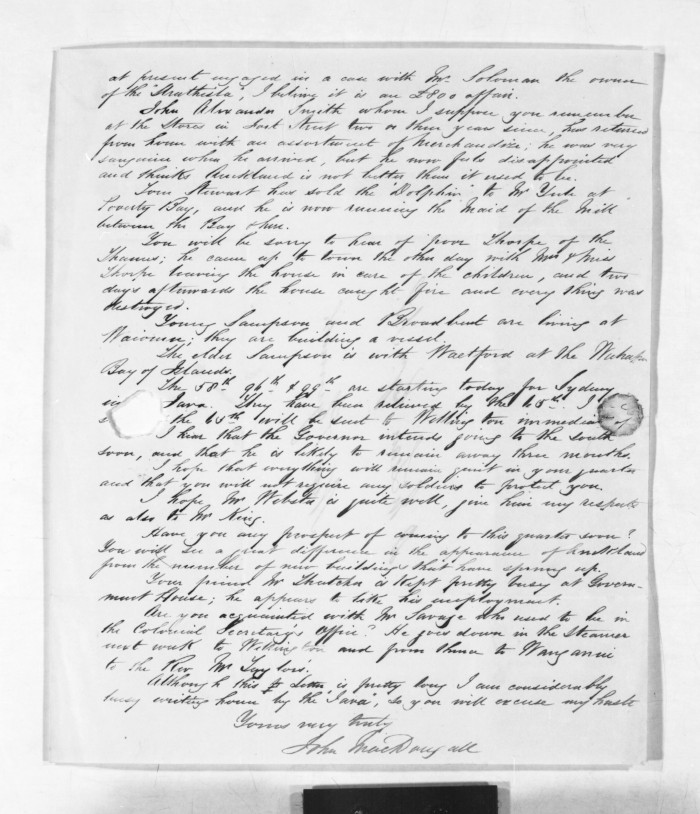 at present engaged in a case with Mr. Soloman the owner
of the "Strathisla", I believe it is an £800 affair.
John Alexander Smith whom I suppose you remember
at the Stores in Fort Street two or three years since, has returned
from home with an assortment of Merchandize; he was very
sanguine when he arrived, but he now feels disappointed
and thinks Auckland is not better than it used to be.
Tom Stewart has sold the "Dolphin" to Mr Yule at
Poverty Bay, and he is now running the Maid of the Mill
between the Bay & here.
You will be sorry to hear of poor Thorpe of the
Thames; he came up to town the other day with Mrs & Miss
Thorpe leaving the house in care of the children, and two
days afterwards the house caught fire and every thing was
destroyed.
Young Sampson and Broadbent are living at
they are building a vessel.
The elder Sampson is with Wastford at the
Bay of Islands.
The 58th 96th & 99th are starting today for Sydney
Java. They have been relieved by the 65th. I
the 65th will be sent to Wellington
I hear that the Governor intends going to the south
soon, and that he is likely to remain away three months.
I hope that everything will remain quiet in your quarter
and that you will not require any soldiers to protect you.
I hope Mr Webster is quite well, give him my respects
as also to Mr King.
Have you any prospect of coming to this quarter soon?
You will see a great difference in the appearance of Auckland
from the number of new buildings that have sprung up.
Your friend Mr is kept pretty busy at Govern-
ment House; he appears to like his employment.
Are you acquainted with Mr Savage who used to be in
the Colonial Secretary's Office? He goes down in the Steamer
next week to Wellington and from thence to Wanganui
to the Rev. Mr Taylors.
Although this letter is pretty long I am considerably
busy writing home by the "Java", so you will excuse my haste
Yours very truly
John MacDougall